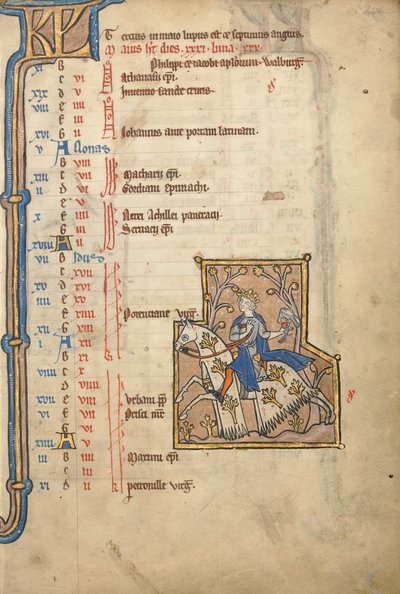 KL Tercius in maio lupus est et septimus anguis.
Maius ht dies. xxxi. luna. xxx.
B Philippi et iacobi aplorum. Walburg.
xi c vi Athanasii epi.
d v Inventio sancte crucis.
xix e iiii
viii f iii
g ii Iohannis ante portam latinam.
xvi A Nonas
v B viii
c vii
xiii d vi Macharii epi.
ii e v Gordiani epimachi.
f iiii
x g iii Nerei Achillei pancracii.
A ii Servacii epi.
xviii B Idus
vii c xvii
d xvi
xv e xv
iiii f xiiii Potenciane virg.
g xiii
xii A xii
i B xi
c x
ix d ix
e viii
xvii f vii Urbani pp
vi g vi Prisci mr
A v
xiiii B iiii Maximi epi.
iii c iii
d ii petronille virg.
xi